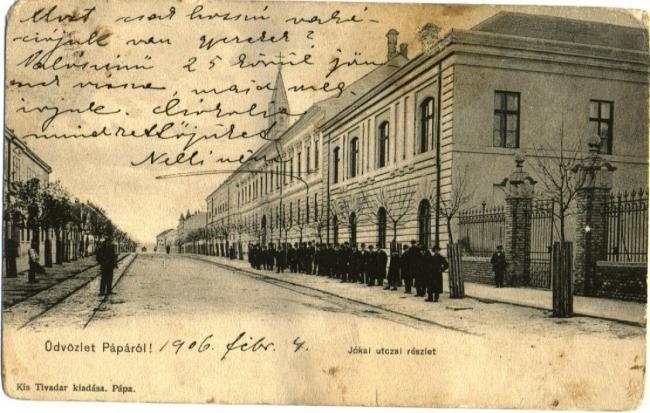 Most csak hosszú vaká-
ciójuk van gyerekek?
Valószínű 25 körül jön-
nek vissza, majd meg
írjuk. Csókol
mindnettőjüket
Nelli néni
Üdvözlet Pápáról! 1906. febr. 4.
Jókai utczai részlet
Kis Tivadar kiadása. Pápa.